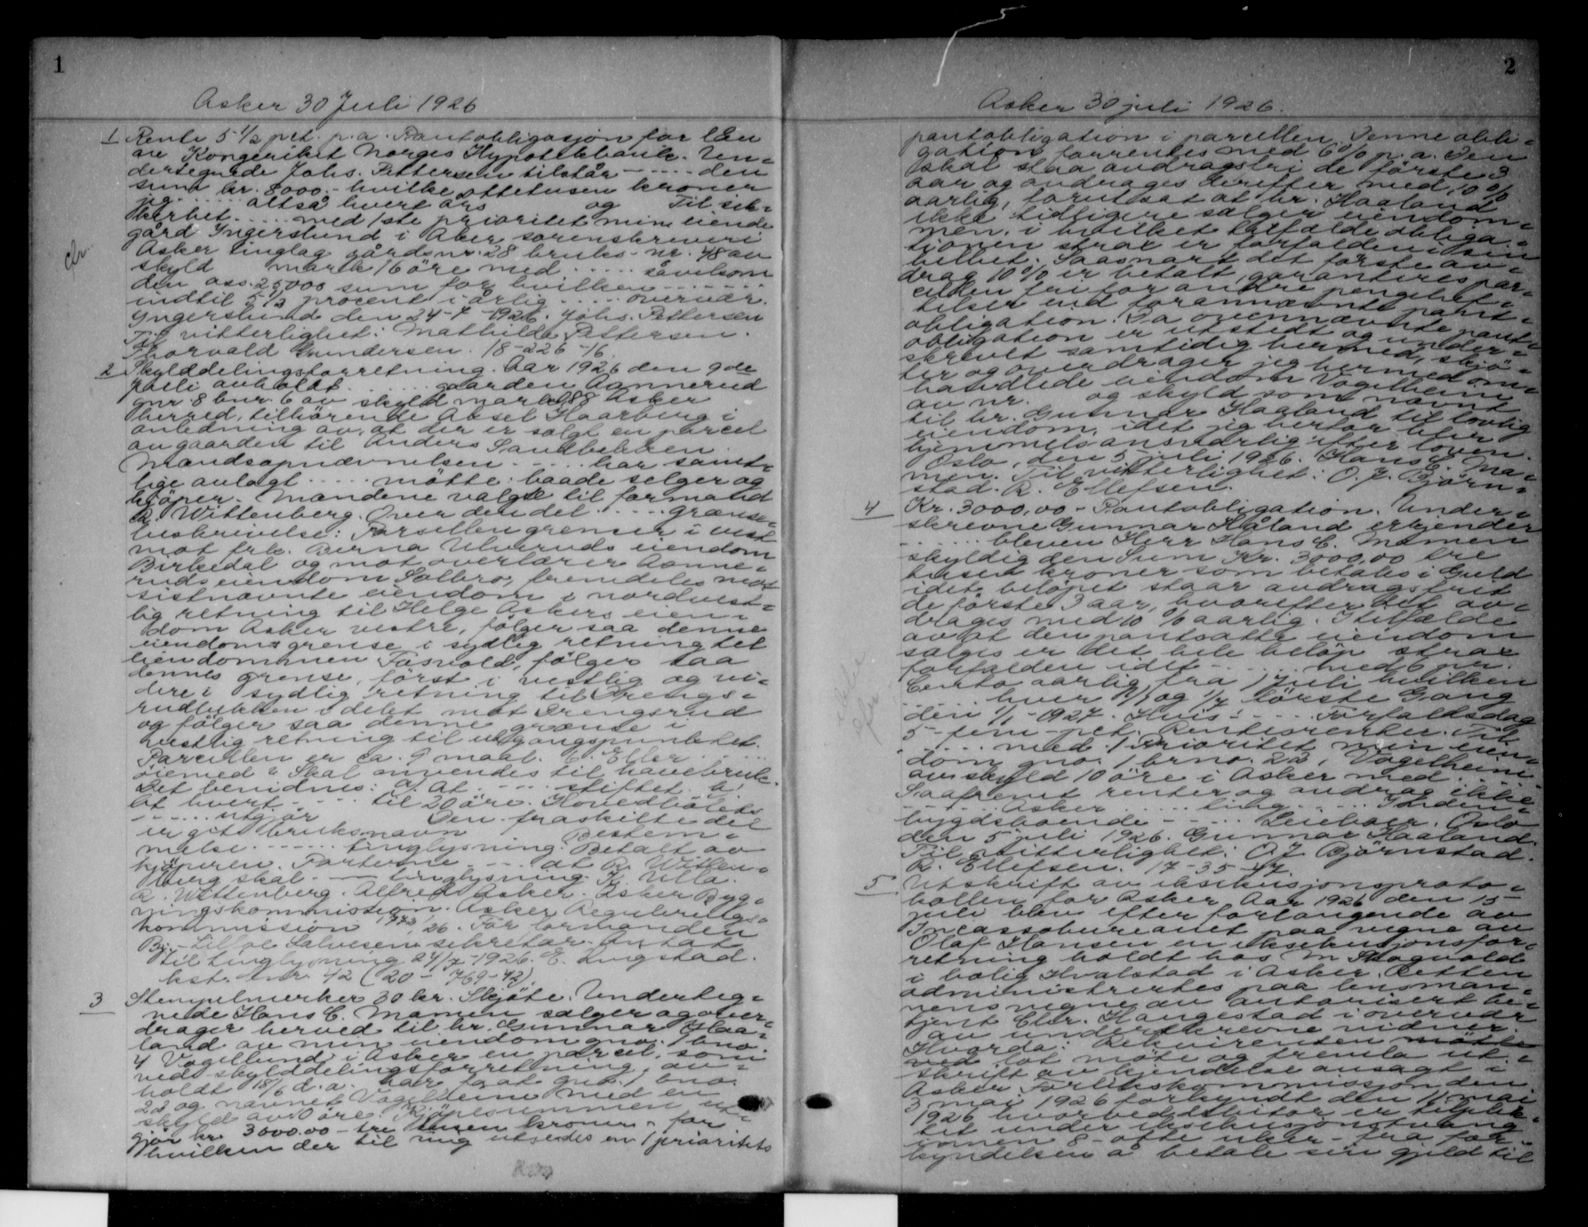 1
Asker 30 Juli 1926
1 Rente 5 1/2 pct. p.a. Pantobligasjon for lån
av Kongeriket Norges Hypotekbank. Un-
dertegnede Johs. Pettersen tilstår - .... den
sum kr. 8000.- hvilke ottetusen kroner
jeg ..... altså hvert års og Til sik-
kerhet .... med 1ste prioritet min eiende
gård Yngerslund i Aker sorenskriveri
Asker tinglag gårdsnr. 28 bruks-nr. 48 av
skyld mark 16 öre med ..... såvelsom
den ass. 25000 sum for hvilken - - - - -
indtil 5 1/2 procent i årlig ..... overvær.
Yngerslund den 24-7-1926. Johs. Pettersen
Til vitterlighet: Mathilde Pettersen.
Thorvald Gundersen. 18-226-16.
2 Skylddelingsforretning. Aar 1926 den 9de
juli avholdt ...... gaarden Aannerud
gnr 8 bnr. 6 av skyld mark Asker
herred, tilhörende Aksel Haarberg i
anledning av, at der er solgt en parcel
av gaarden til Anders Sandbekken.
Mandsopnævnelsen .... har samt-
lige avlagt .... mötte: baade selger og
kjöper. Mændene valgte til formand
R. Wittenberg. Over den del ..... grænse-
beskrivelse: Parsellen grenser i vest
mot frk. Berna Ulveruds eiendom
Birkedal og mot overlærer Aanne-
ruds eiendom Solbro, fremdeles mot
sistnævnte eiendom i nordvest-
lig retning til Helge Askers eien-
dom Asker vestre, fölger saa denne
eiendoms grense i sydlig retning til
eiendommen Fasvold, fölger saa
dennes grense, först i vestlig og vi-
dere i sydlig retning til Drengs-
rudbekken i delet mot Drengsrud
og fölger saa denne grænse i
vestlig retning til utgangspunktet.
Parcellen er ca. 9 maal. C. Eller .....
öiemed: Skal anvendes til havebruk.
Det bevidnes: a. At .... stiftet. b.
At hvert .... til 20 öre. Hovedbölets
..... utgjör Den fraskilte del
er git bruksnavn Bestem-
melse ..... tinglysning. Betalt av
kjöperen. Parterne .... at R. Witten-
berg skal - tinglysning.
R. Wittenberg. Alfred Asker. Asker Byg-
ningskommission. Asker Regulerings-
kommission /26. For formanden
Salvesen sekretær. Antat
til tinglysning 24/7-1926. E. Lingstad.
42 (20 - 769-42)
3 Stempelmerker 30 kr. Skjöte. Underteg-
nede Hans C. Mamen sælger og over-
drager herved til hr. Gunnar Haa-
land av min eiendom gno. 1 bno.
4 Vogellund i Asker en parcel, som
ved skylddelingsforretning, av-
holdt 18/6 d.a. har faat gno. 1 bno.
22 og navnet Vogelheim med en
skyld av 10 öre. Kjöpesummen ut-
gjör kr. 3000.00 - tre tusen kroner - for
hvilken der til mig utstedes en 1 prioritets
2
Asker 30 juli 1926.
pantobligation i parcellen. Denne obli-
gation forrentes med 6 % p.a. Den
skal staa avdragsfri de förste 3
aar og avdrages derefter med 10 %
aarlig, forutsat at hr. Haaland
ikke tidligere sælger eiendom-
men, i hvilket tilfælde obliga-
tionen strax er forfalden i sin
helhet. Saasnart det förste av-
drag 10 % er betalt, garanteres par-
cellen fri for andre pengehef-
telser end forannævnte pant-
obligation. Da ovennævnte pant-
obligation er utstedt og under-
skrevet samtidig hermed, skjö-
ter og overdrager jeg hermed om-
handlede eiendom Vogelheim
av nr. og skyld som nævnt
til hr. Gunnar Haaland til lovlig
eiendom, idet jeg herfor blir
hjemmelsansvarlig efter loven.
Oslo, den 5 juli 1926. Hans C. Ma-
men. Til vitterlighet: O. J. Björn-
stad. R. Ellefsen.
4 Kr. 3000,00 - Pantobligation. Under-
skrevne Gunnar Håland erkjender
..... bleven Herr Hans C. Mamen
skyldig den Sum Kr. 3000,00 tre
tusen kroner som betales i Guld
idet belöpet staar avdragsfrit
de förste 3 aar, hvorefter det av-
drages med 10 % aarlig. I tilfælde
av at den pantsatte eiendom
sælges er det hele belöp strax
forfalden idet - .... med 6 pr.
Cento aarlig fra 1 juli hvilken
.... hver 1/1 og 1/7 förste Gang
den 1/1-1927. Hvis: .... Forfaldsdag
5 - fem - pct. Rentesrenter. Til
.... med 1 Prioritet min eien-
dom gno. 1 brno. 22, Vogelheim
av skyld 10 öre i Asker med ...
Saafremt renter og avdrag ikke
.... Asker ..... ting ..... Inden-
bygdsboende - .... Leieboer. Oslo
den 5 juli 1926. Gunnar Haaland.
Til vitterlighet: O J Björnstad.
R. Ellefsen. 17-35-47.
5 Utskrift av eksekusjonsproto-
kollen for Asker. Aar 1926 den 15
juli blev efter forlangende av
Incassobureauet paa vegne av
Olaf Hansen en eksekusjonsfor-
retning holdt hos M Skogvold
i bolig Hvalstad i Asker. Retten
administrertes paa lensman-
nens vegne av autorisert be-
tjent Chr. Haugestad i overvær
av underskrevne vidner.
Hvorda: Rekvirenten mötte
ved lot möte og fremla ut-
skrift av kjendelse avsagt i
Asker Forlikskommission den
3 mai 1926 forkyndt den 11 mai
1926 hvorved debitor er tilplik-
tet under eksekusjonstvang
innen 8 - otte uker - fra for-
kyndelsen å betale sin gjeld til